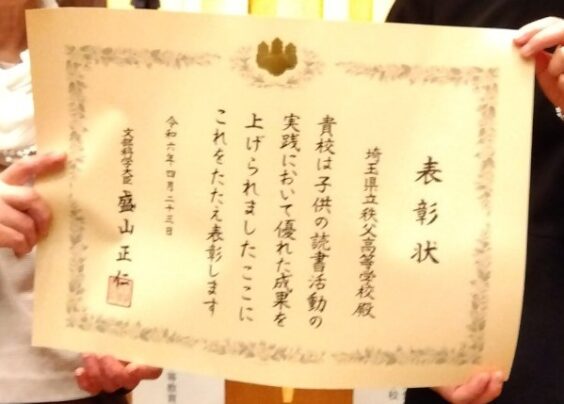 表彰状
埼玉県立秩父高等学校殿
貴校は子供の読書活動の
実践において優れた成果を
上げられましたここに
これをたたえ表彰します
令和六年四月二十三日
文部科学大臣 盛山正仁
等教育
校